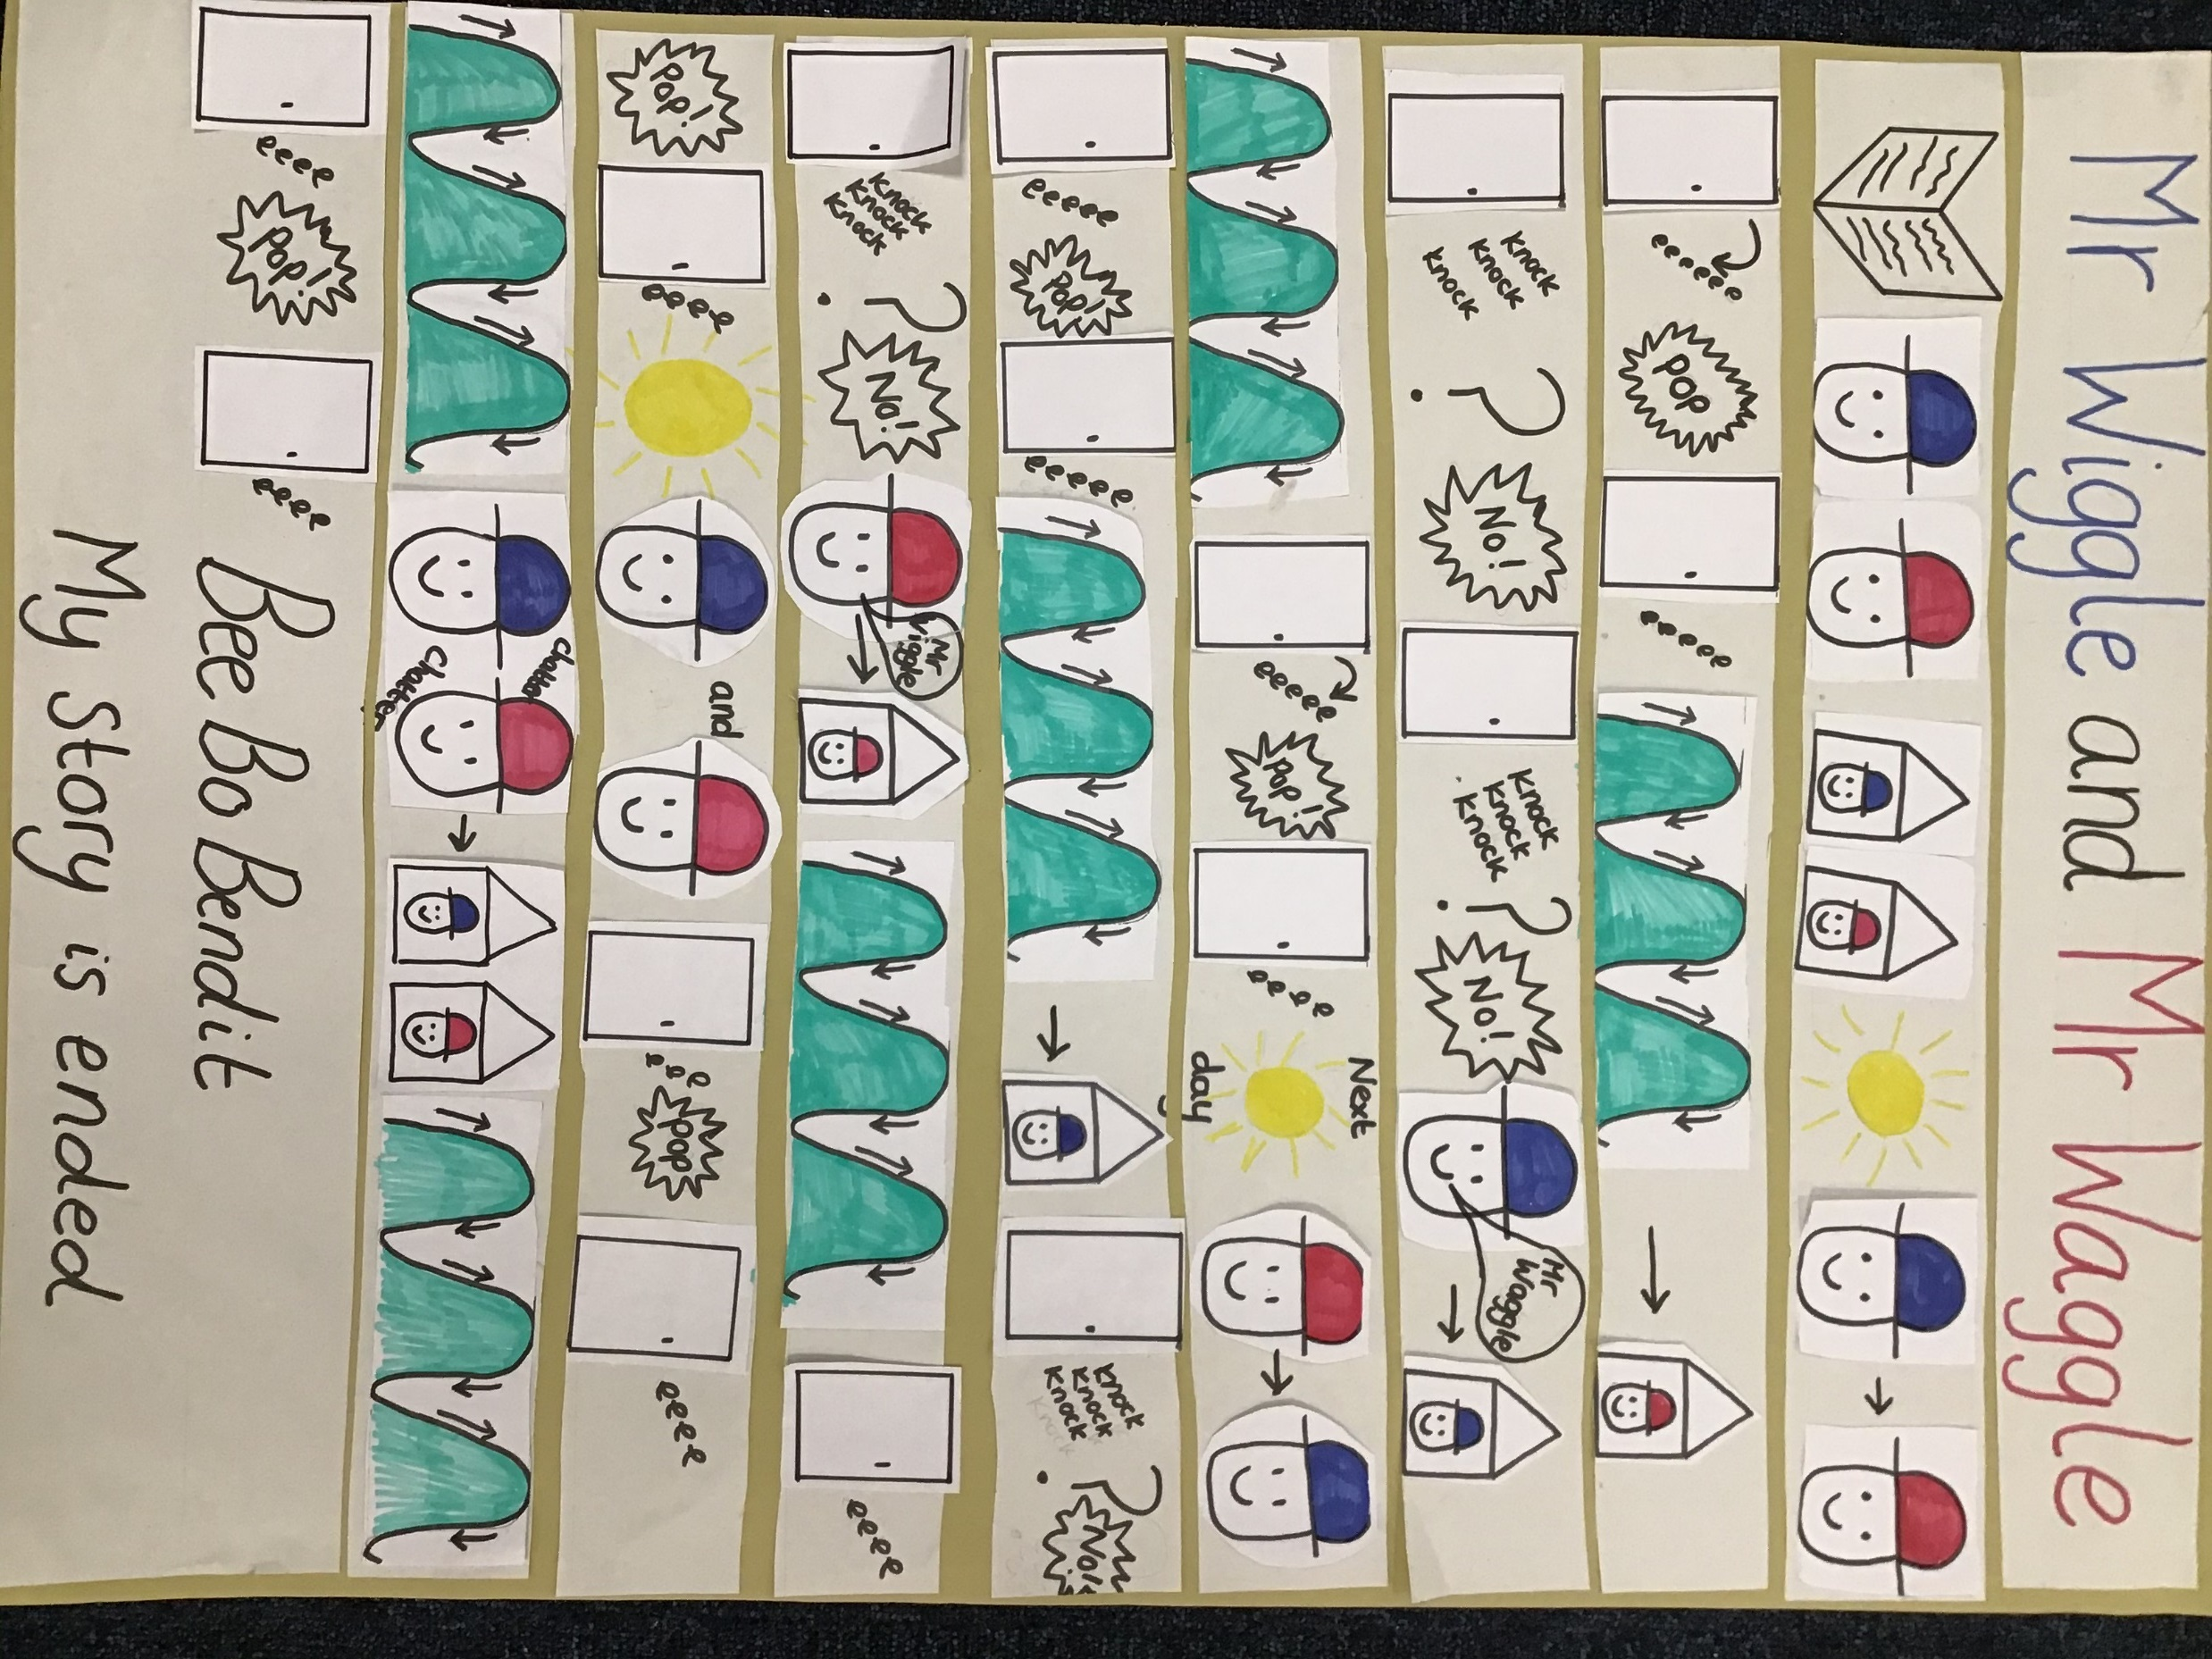 Mr Wiggle and Mr Waggle
eeeee POP eeeee
Knock Knock Knock ? No! Knock Knock Knock ? No! Mr Waggle
eeeee Pop! eeee Next day
eeeee Pop! eeeee Knock Knock Knock ? No!
Knock Knock Knock ? No! Mr Wiggle eeee
Pop! eeee and eeee Pop eeee
Chatter Chatter
eeee Pop! eeee Bee Bo Bendit
My Story is ended